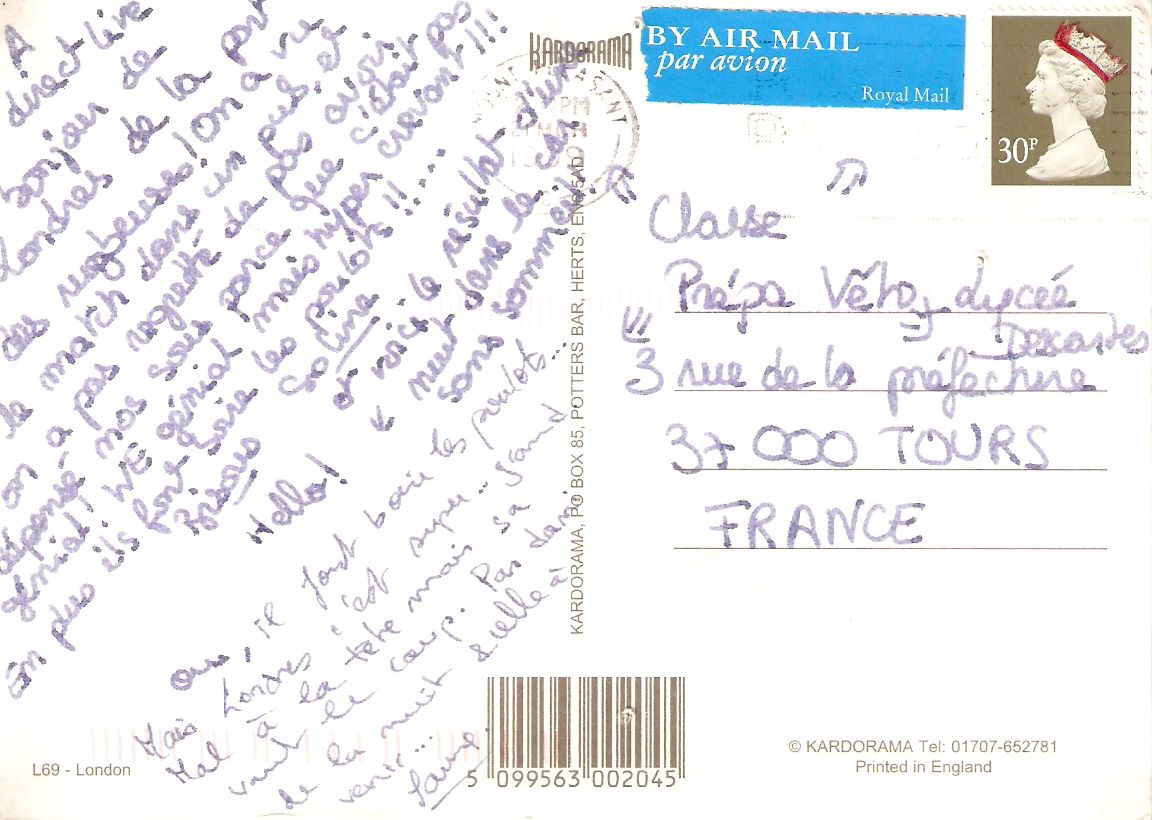 direct live
bonjour de
Londres de la part
des
le match dans un pub et
on a pas regretté de pas avoir
dépensé nos sous parce que c'était pas
génial! WE génial mais hyper crevant!!!
En plus ils font boire les poulots!!....
Bisous Céline
voici le résultat d'une
nuit dans le car
sans sommeil!
Hello!
il font boire les poulots...
Mais Londres c'est super..
Mal à la tête mais sa
vaut le coup. Pas
de la nuit & celle à
venir...
L69 - London
KARDORAMA
KARDORAMA, PO BOX 85, POTTERS BAR, HERTS, EN6 5AD
BY AIR MAIL
par avion
Royal Mail
30P
Classe
Prépa Véto, Lycée
Descartes
3 rue de la préfecture
37 000 TOURS
FRANCE
5 099563 002045
© KARDORAMA Tel: 01707-652781
Printed in England